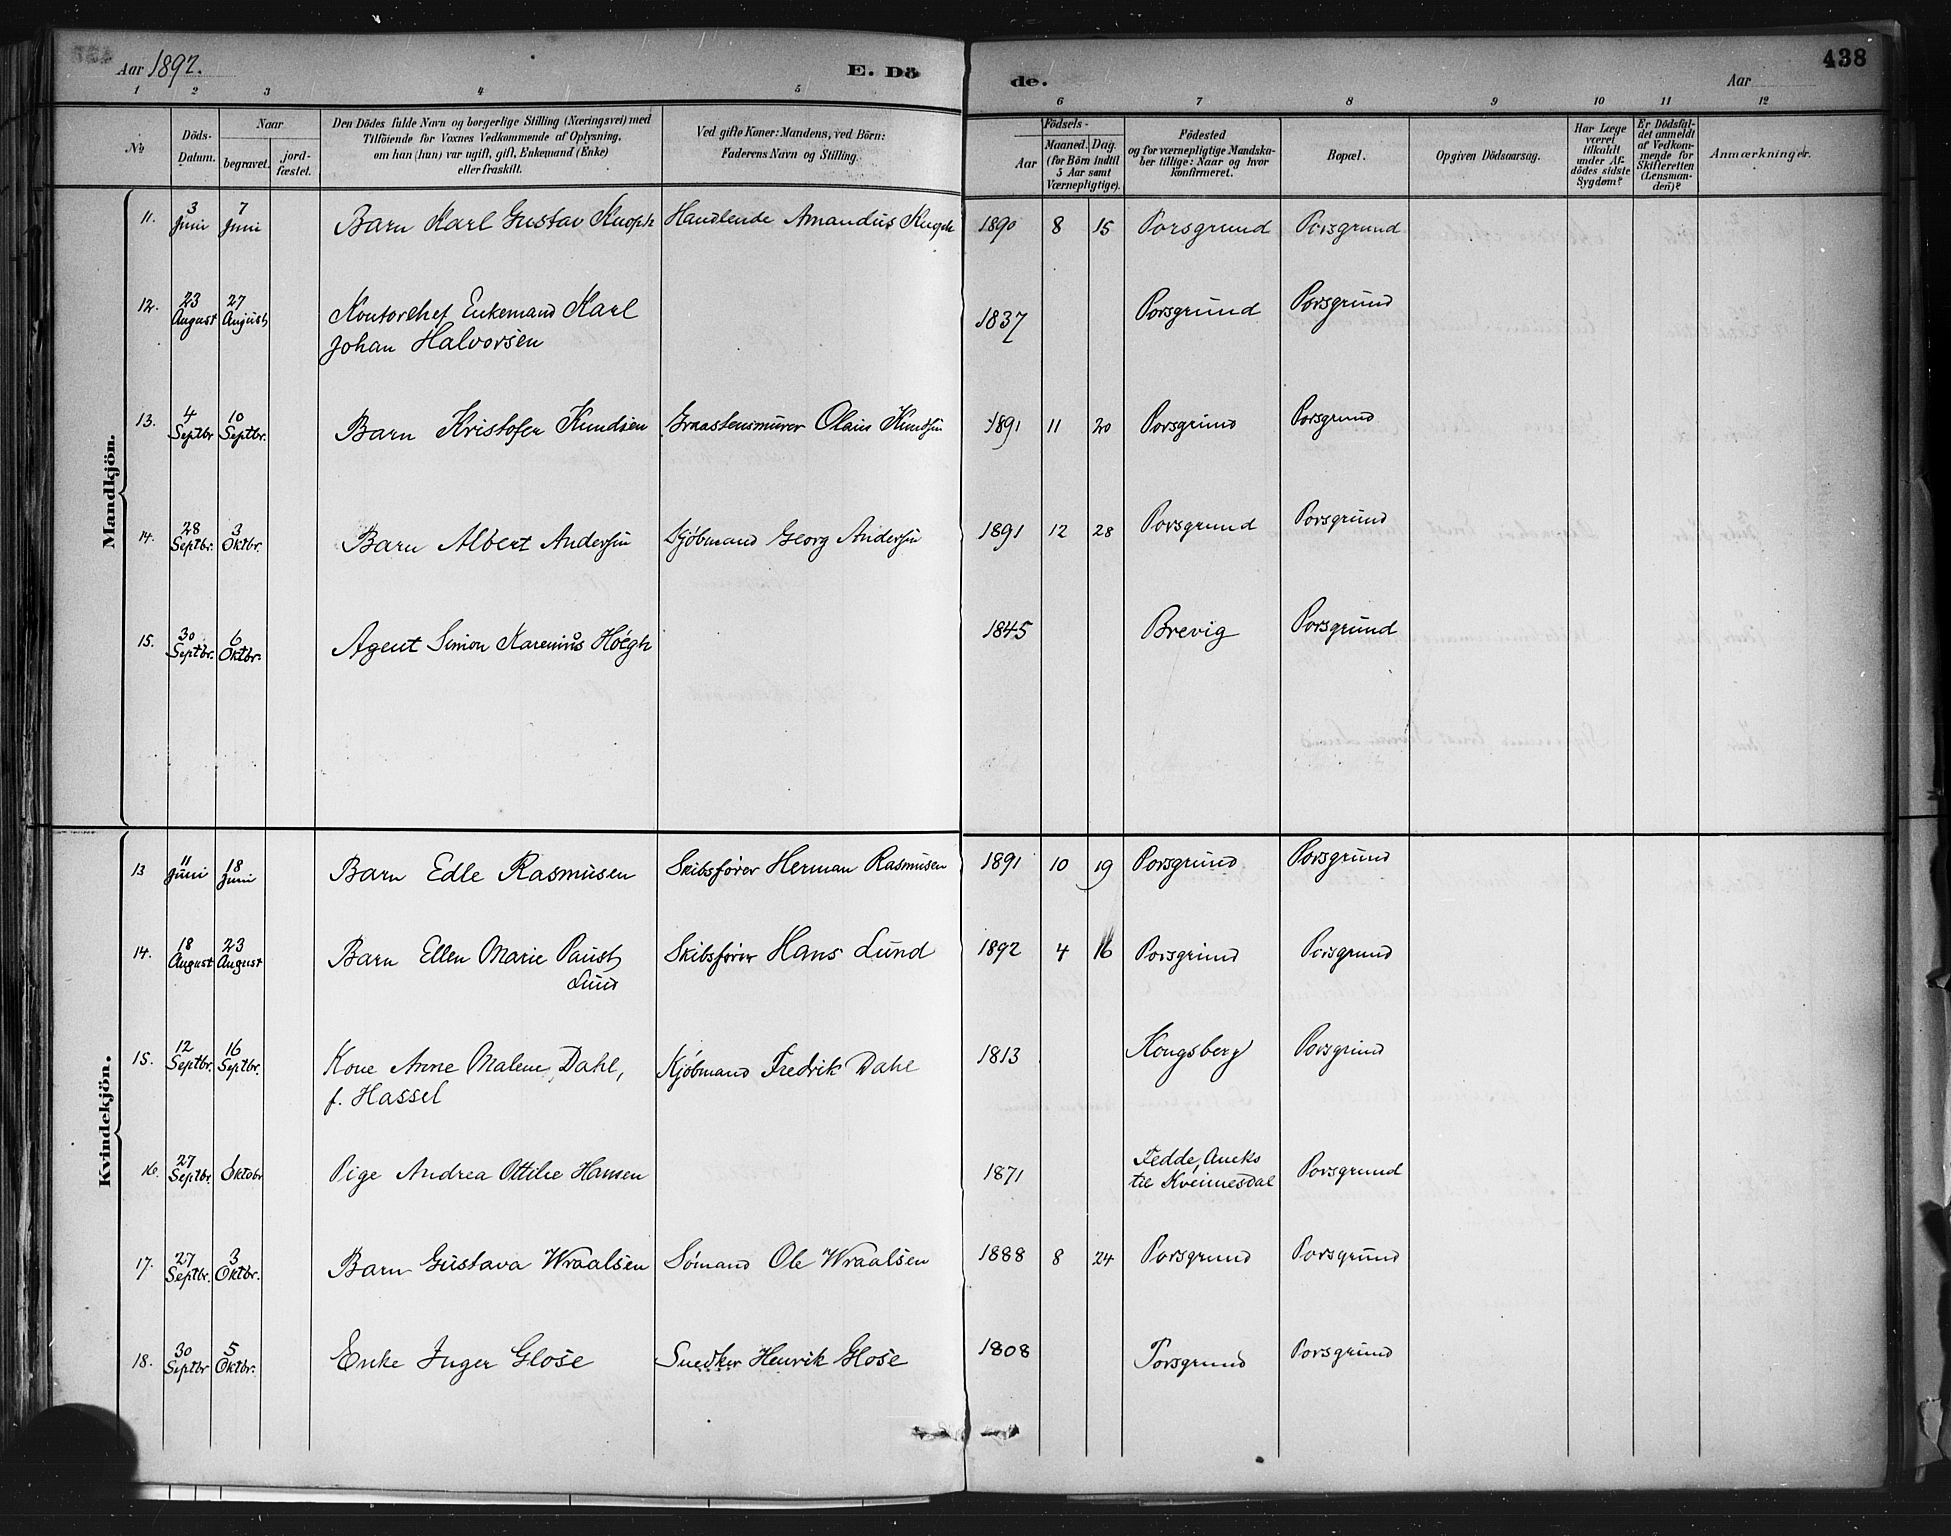 Aar 1892.
E. Dö
de.
Aar
438
1 2 3 4 5 6 7 8 9 10 11 12
No
Döds-
Datum.
Naar
begravet.
jord-
fæstet.
Den Dödes fulde Navn og borgerlige Stilling (Næringsvei) med
Tilföiende for Voxnes Vedkommende af Oplysning,
om han (hun) var ugift, gift, Enkemand (Enke)
eller fraskilt.
Ved gifte Koner: Mandens, ved Börn:
Faderens Navn og Stilling.
Födsels-
Aar
Maaned. Dag.
(for Börn indtil
5 Aar samt
Værnepligtige).
Födested
og for værnepligtige Mandska-
ber tillige: Naar og hvor
konfirmeret.
Bopæl.
Opgiven Dödsaarsag.
Har Læge
været
tilkaldt
under Af-
dödes sidste
Sygdom?
Er Dödsfal-
det anmeldt
af Vedkom-
mende for
Skifteretten
(Lensman-
den)?
Anmærkninger.
Mandkjön.
11. 3 Juni 7 Juni Barn Karl Gustav Knoph Handlende Amandus Knoph 1890 8 15 Porsgrund Porsgrund
12. 23 August 27 August Kontorchef Enkemand Karl
Johan Halvorsen 1837 Porsgrund Porsgrund
13. 4 Septbr 10 Septbr. Barn Kristofer Knudsen Graastensmurer Olaus Knudsen 1891 11 20 Porsgrund Porsgrund
14. 28 Septbr. 3 Oktbr. Barn Albert Andersen Kjøbmand Georg Andersen 1891 12 28 Porsgrund Porsgrund
15. 30 Septbr. 6 Oktbr. Agent Simon Karenius Höegh 1845 Brevig Porsgrund
Kvindekjön.
13 11 Juni 18 Juni Barn Edle Rasmusen Skibsfører Herman Rasmusen 1891 10 19 Porsgrund Porsgrund
14. 18 August 23 August Barn Ellen Marie Paust
Lund Skibsfører Hans Lund 1892 4 16 Porsgrund Porsgrund
15. 12 Septbr. 16 Septbr. Kone Anne Malene Dahl,
f. Hassel Kjøbmand Fredrik Dahl 1813 Kongsberg Porsgrund
16. 27 Septbr. 1 Oktobr Pige Andrea Ottilie Hansen 1871 Fedde, Aneks
til Kvinnesdal Porsgrund
17. 27 Septbr. 3 Oktbr. Barn Gustava Wraalsen Sømand Ole Wraalsen 1888 8 24 Porsgrund Porsgrund
18. 30 Septbr 5 Oktbr. Enke Inger Glose Snedker Henrik Glose 1808 Porsgrund Porsgrund